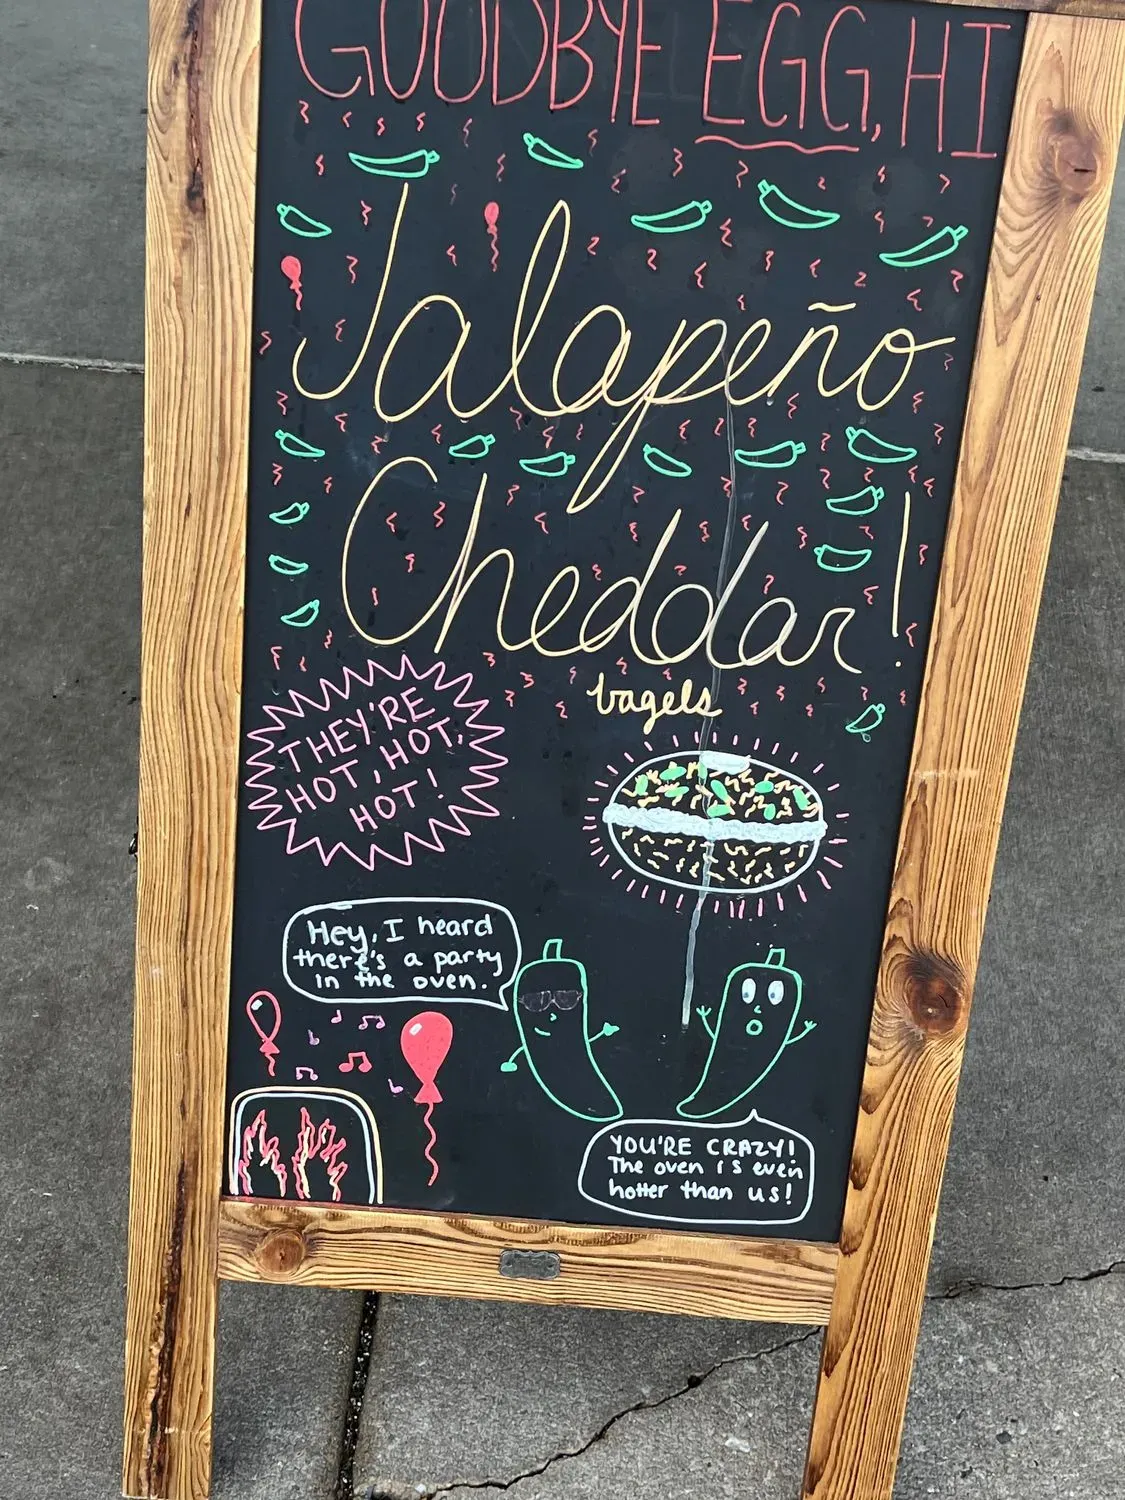 GOODBYE EGG, HI
Jalapeño
Cheddar!
bagels
THEY'RE
HOT, HOT,
HOT!
Hey, I heard
there's a party
in the oven.
YOU'RE CRAZY!
The oven is even
hotter than us!